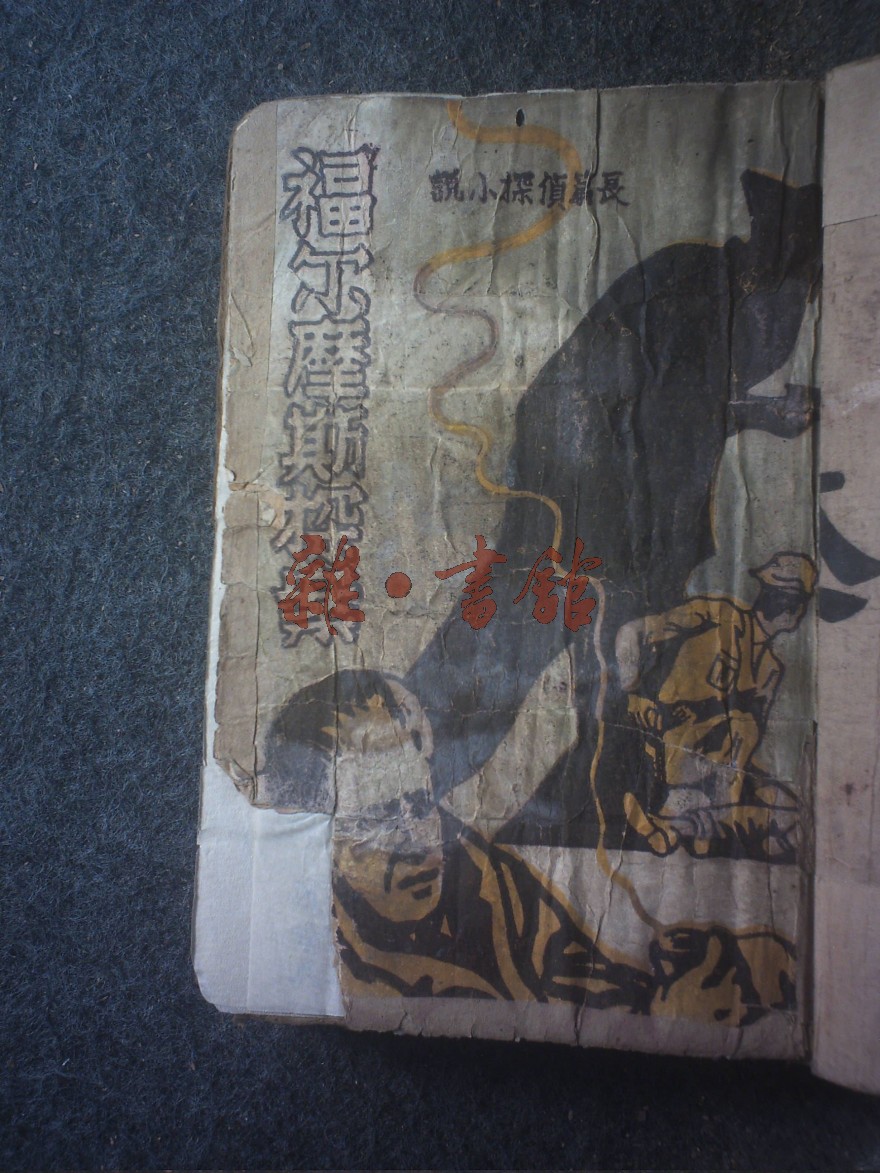 長篇偵探小說
福尔摩斯
雜·書館